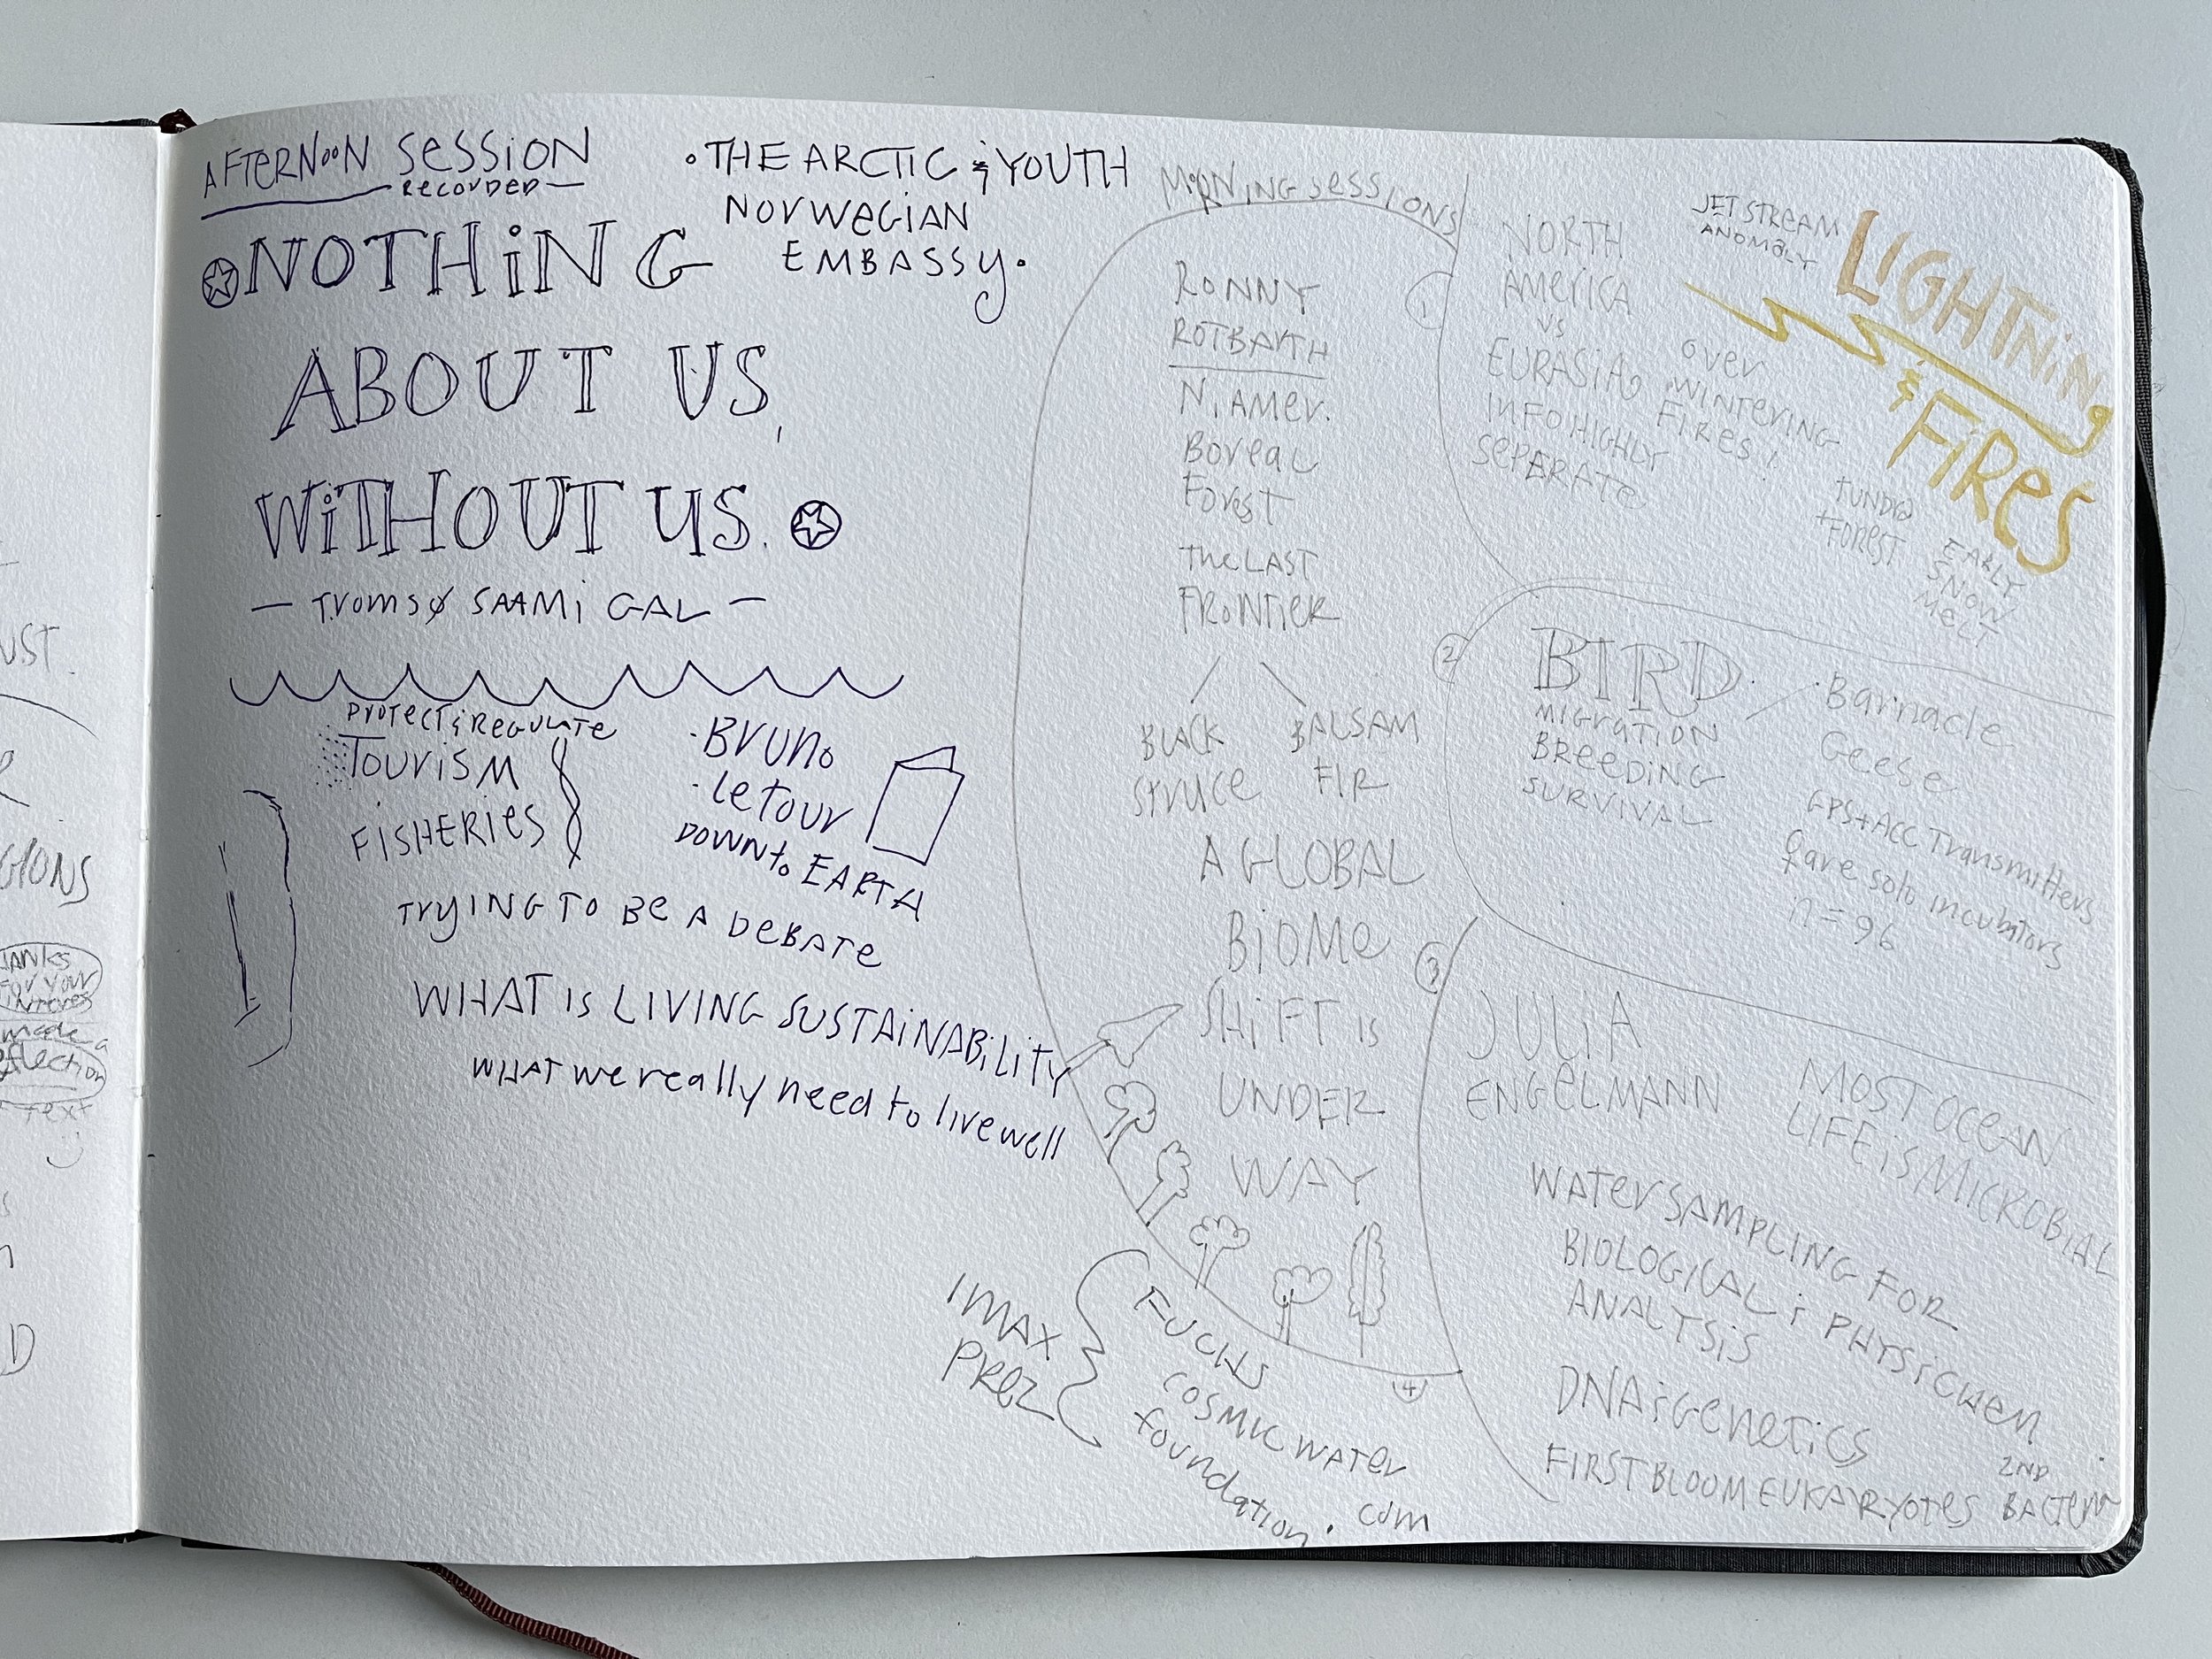 AFTERNOON SESSION
RECORDED
• THE ARCTIC & YOUTH
NORWEGIAN
EMBASSY •
NOTHING
ABOUT US,
WITHOUT US.
— TROMSØ SAAMI GAL —
PROTECT & REGULATE
TOURISM
FISHERIES
• BRUNO
• LETOUR
DOWN to EARTH
TRYING TO BE A DEBATE
WHAT IS LIVING SUSTAINABILITY
WHAT we really need to live well
MORNING SESSIONS
RONNY
ROTBARTH
N. AMER.
BOREAL
FOREST
THE LAST
FRONTIER
BLACK
STRUCE
BALSAM
FIR
A GLOBAL
BIOME
SHIFT IS
UNDER
WAY
IMAX
PREZ
FUCHS
COSMIC WATER
foundation.com
1
NORTH
AMERICA
VS
EURASIA
INFO HIGHLY
SEPERATE
JET STREAM
ANOMALY
LIGHTNING
& FIRES
OVER
WINTERING
FIRES!
TUNDRA
+ FOREST
EARLY
SNOW
MELT
2
BIRD
MIGRATION
BREEDING
SURVIVAL
• Barnacle
Geese
GPS + ACC Transmitters
♀ are solo incubators
n = 96
3
JULIA
ENGELMANN
MOST OCEAN
LIFE is MICROBIAL
WATER SAMPLING FOR
BIOLOGICAL & PHYSICHEM
ANALYSIS
DNA & Genetics
FIRST BLOOM EUKARYOTES
2ND
4
UST
GIONS
for your
made a
text
D